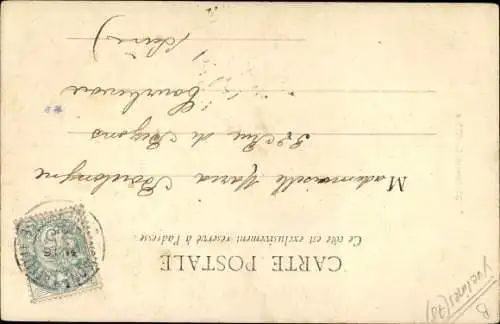 CARTE POSTALE
Ce côté est exclusivement réservé à l'adresse.
Mademoiselle Maria Boulongne
32 Rue de Bezons
Courbevoie
(Seine)
B
Yvelines (78)